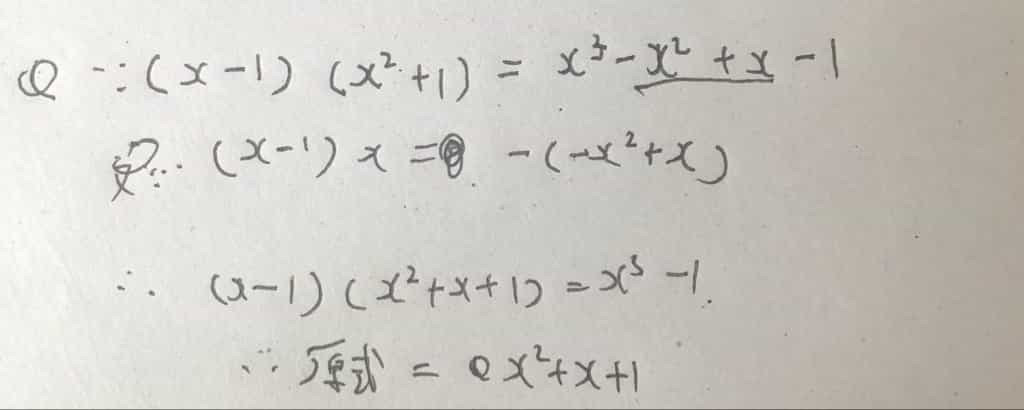 ② ∵ (x-1) (x²+1) = x³-x²+x-1
又∵ (x-1) x = -(-x²+x)
∴ (x-1) (x²+x+1) = x³-1.
∴ 原式 = x²+x+1